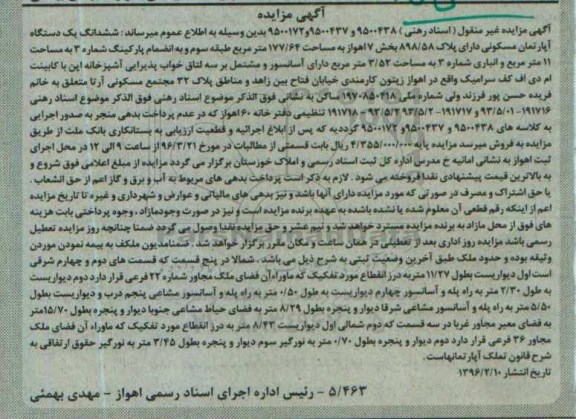 آگهی مزایده
آگهی مزایده غیر منقول ( اسناد رهنی ) ۹۵۰۰۴۳۸ و ۹۵۰۰۴۳۷و۹۵۰۰۱۷۲ بدین وسیله به اطلاع عموم میرساند : ششدانگ یک دستگاه
آپارتمان مسکونی دارای پلاک ۸۹۸/۵۸ بخش ۷اهواز به مساحت ۱۷۷/۶۴ متر مربع طبقه سوم و به انضمام پارکینگ شماره ۳ به مساحت
۱۱ متر مربع و انباری شماره ۳ به مساحت ۳/۵۲ متر مربع دارای آسانسور و مشتمل بر سه اتاق خواب پذیرایی آشپزخانه اپن با کابینت
ام دی اف کف سرامیک واقع در اهواز زیتون کارمندی خیابان فتاح بین زاهد و مناطق پلاک ۳۲ مجتمع مسکونی آرتا متعلق به خانم
فریده حسن پور فرزند ولی شماره ملی ۱۹۷۰۸۵۰۴۱۸ ساکن به نشانی فوق الذکر موضوع اسناد رهنی فوق الذکر موضوع اسناد رهنی
۱۹۱۷۱۶- ۹۳/۵/۰۱ و ۱۹۱۷۱۷- ۹۳/۵/۲ و ۱۹۱۷۱۸ تنظیمی دفتر خانه ۶۰ اهواز که در عدم پرداخت بدهی منجر به صدور اجرایی
به کلاسه های ۹۵۰۰۴۳۸ و ۹۵۰۰۴۳۷و ۹۵۰۰۱۷۲ گردیده که پس از ابلاغ اجرائیه و قطعیت ارزیابی به بستانکاری بانک ملت از طریق
مزایده به فروش میرسد مزایده پایه ۴/۳۵۵/۰۰۰/۰۰۰ ریال بابت قسمتی از مطالبات در مورخ ۹۶/۳/۲۱از ساعت ۹ الی ۱۲ در محل اجرای
ثبت اهواز به نشانی امانیه خ مدرس اداره کل ثبت اسناد رسمی و املاک خوزستان برگزار می گردد مزایده از مبلغ اعلامی فوق شروع و
به بالاترین قیمت پیشنهادی نقدا فروخته می شود . لازم به ذکر است پرداخت بدهی های مربوط به آب و برق و گاز اعم از حق انشعاب .
یا حق اشتراک و مصرف در صورتی که مورد مزایده دارای آنها باشد و نیز بدهی های مالیاتی و عوارض و شهرداری و غیره تا تاریخ مزایده
اعم از اینکه رقم قطعی آن معلوم شده یا نشده باشد به عهده برنده مزایده است و نیز در صورت وجودمازاد ، وجوه پرداختی بابت هزینه
های فوق از محل مازاد به برنده مزایده مسترد خواهد شد و نیم عشر و حق مزایده نقدا وصول می گردد ضمنا چنانچه روز مزایده تعطیل
رسمی باشد مزایده روز اداری بعد از تعطیلی در همان ساعت و مکان مقرر برگزار خواهد شد . ضمنامدیون مکلف به بیمه نمودن موردن
وثیقه بوده و حدود ملک طبق آخرین وضعیت ثبتی به شرح ذیل می باشد . شمالا در پنج قسمت که قسمت های دوم و چهارم شرقی
است اول دیواریست بطول ۱۱/۲۷ متر به درز انقطاع مورد تفکیک که ماوراءآن فضای ملک مجاور شماره ۲۲ فرعی قرار دارد دوم دیواریست
به طول ۲/۳۰ متر به راه پله و آسانسور چهارم دیواریست به طول ۰/۵۰ متر به راه پله و آسانسور مشاعی پنجم درب و دیواریست بطول
۵/۵۰ متر به راه پله و آسانسور مشاعی شرقا دیوار و پنجره بطول ۸/۲۹ متر به فضای حیاط مشاعی جنوبا دیوار و پنجره بطول ۱۵/۷۰متر
به فضای معبر مجاور غربا در سه قسمت که دوم شمالی اول دیواریست ۸/۴۳ متر به درز انقطاع مورد تفکیک که ماوراء آن فضای ملک
مجاور ۳۶ فرعی قرار دارد دوم دیوار و پنجره بطول ۰/۷۰ متر به نورگیر سوم دیوار و پنجره بطول ۳/۴۵ متر به نورگیر حقوق ارتفاقی به
شرح قانون تملک آپارتمانهاست.
تاریخ انتشار ۱۳۹۶/۲/۱۰
۵/۴۶۳ - رئیس اداره اجرای اسناد رسمی اهواز - مهدی بهمئی